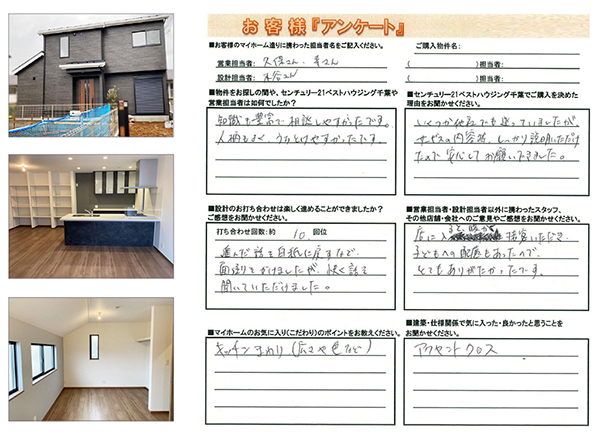 お客様『アンケート』
■お客様のマイホーム造りに携わった担当者名をご記入ください。
営業担当者: 久保さん
設計担当者: 水谷さん
ご購入物件名:
( )担当者:
( )担当者:
■物件をお探しの間や、センチュリー21ベストハウジング千葉や
営業担当者は如何でしたか?
知識も豊富で相談しやすかったです。
人柄もよく、うちとけやすかったです。
■センチュリー21ベストハウジング千葉でご購入を決めた
理由をお聞かせください。
いくつか他社でも迷っていましたが、
サービスの内容等、しっかり説明いただけ
たので安心してお願いできました。
■設計のお打ち合わせは楽しく進めることができましたか?
ご感想をお聞かせください。
打ち合わせ回数:約 10 回位
進んだ話を白紙に戻すなど、
面倒をかけましたが、快く話を
聞いていただけました。
■営業担当者・設計担当者以外に携わったスタッフ、
その他店舗・会社へのご意見やご感想をお聞かせください。
店に入
接客いただき、
子どもへの配慮もあったので、
とてもありがたかったです。
■マイホームのお気に入り(こだわり)のポイントをお教えください。
キッチンまわり(広さや色など)
■建築・仕様関係で気に入った・良かったと思うことを
お聞かせください。
アクセントクロス